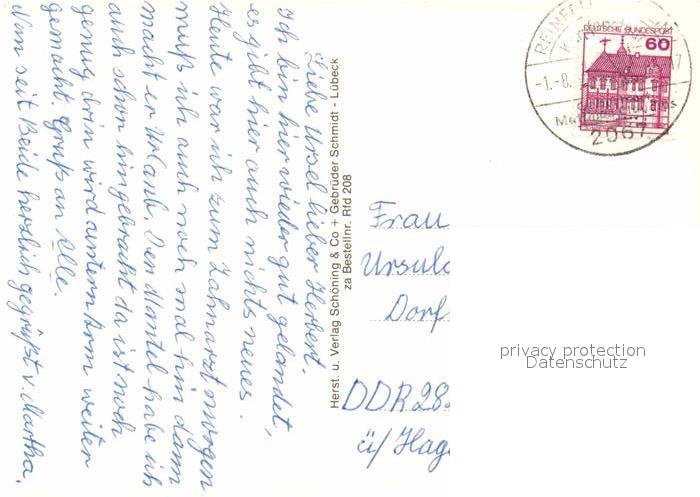 Liebe Ursel lieber Herbert.
Ich bin hier wieder gut gelandet,
es gibt hier auch nichts neues.
Heute war ich zum Zahnarzt morgen
muß ich auch noch mal hin dann
macht er Urlaub. Den Mantel habe ich
auch schon hingebracht da ist noch
genug drin wird untern Arm weiter
gemacht. Gruß an Alle.
Nun seit Beide herzlich gegrüßt v. Martha.
Herst. u. Verlag Schöning & Co + Gebrüder Schmidt - Lübeck
za Bestellnr. Rfd 208
REINFELD
-1.-8.
2067
DEUTSCHE BUNDESPOST
60
Frau
Ursula
Dorf
DDR 28
ü/ Hag
privacy protection
Datenschutz